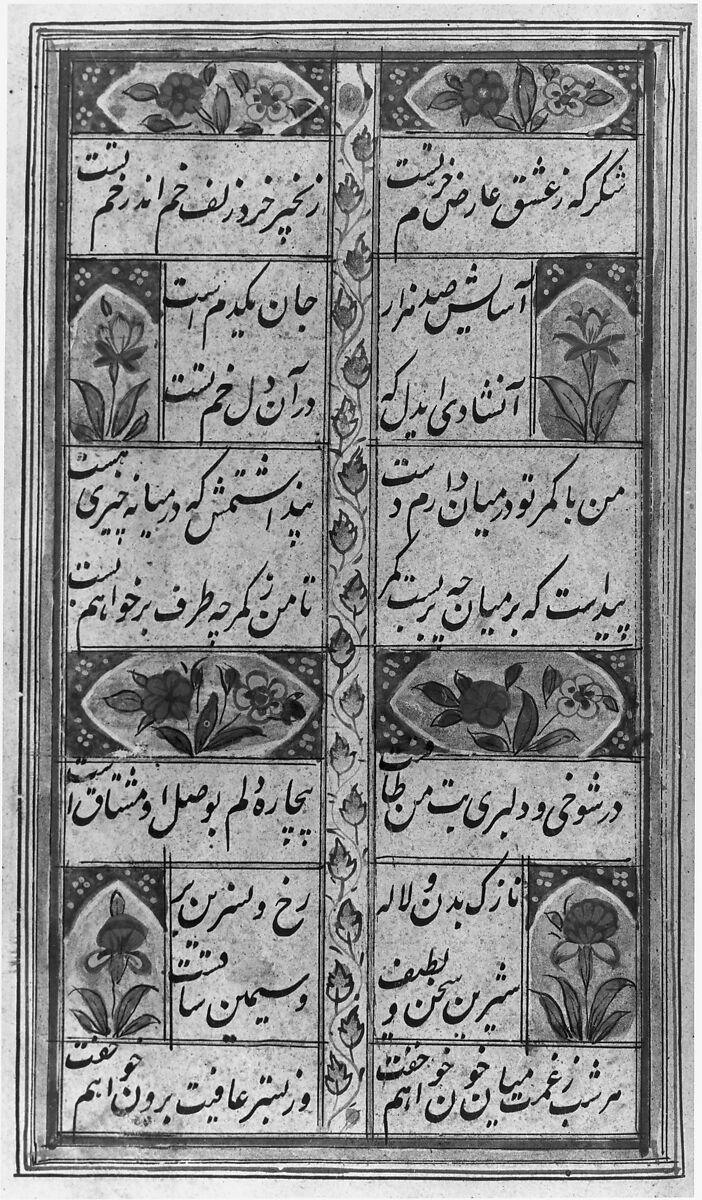 شکر که ز عشق عارض خرم تست
زنجیر خرد زلف خم اندر خم تست
آسایش صد هزار
جان یکدم است
آنشادی ایدل که
در آن دل خم تست
من با کمر تو در میان دارم دست
پنداشتمش که در میانه چیزی هست
پیداست که بر میان چه بربست کمر
تا من ز کمر چه طرف برخواهم بست
در شوخی و دلبری بت من طاقست
بیچاره دلم بوصل او مشتاق است
نازک بدن و لاله
رخ و نسرین بر
شیرین سخن و لطیف
و سیمین ساقست
هر شب ز غمت میان خون خواهم خفت
وز بستر عافیت برون خواهم خفت